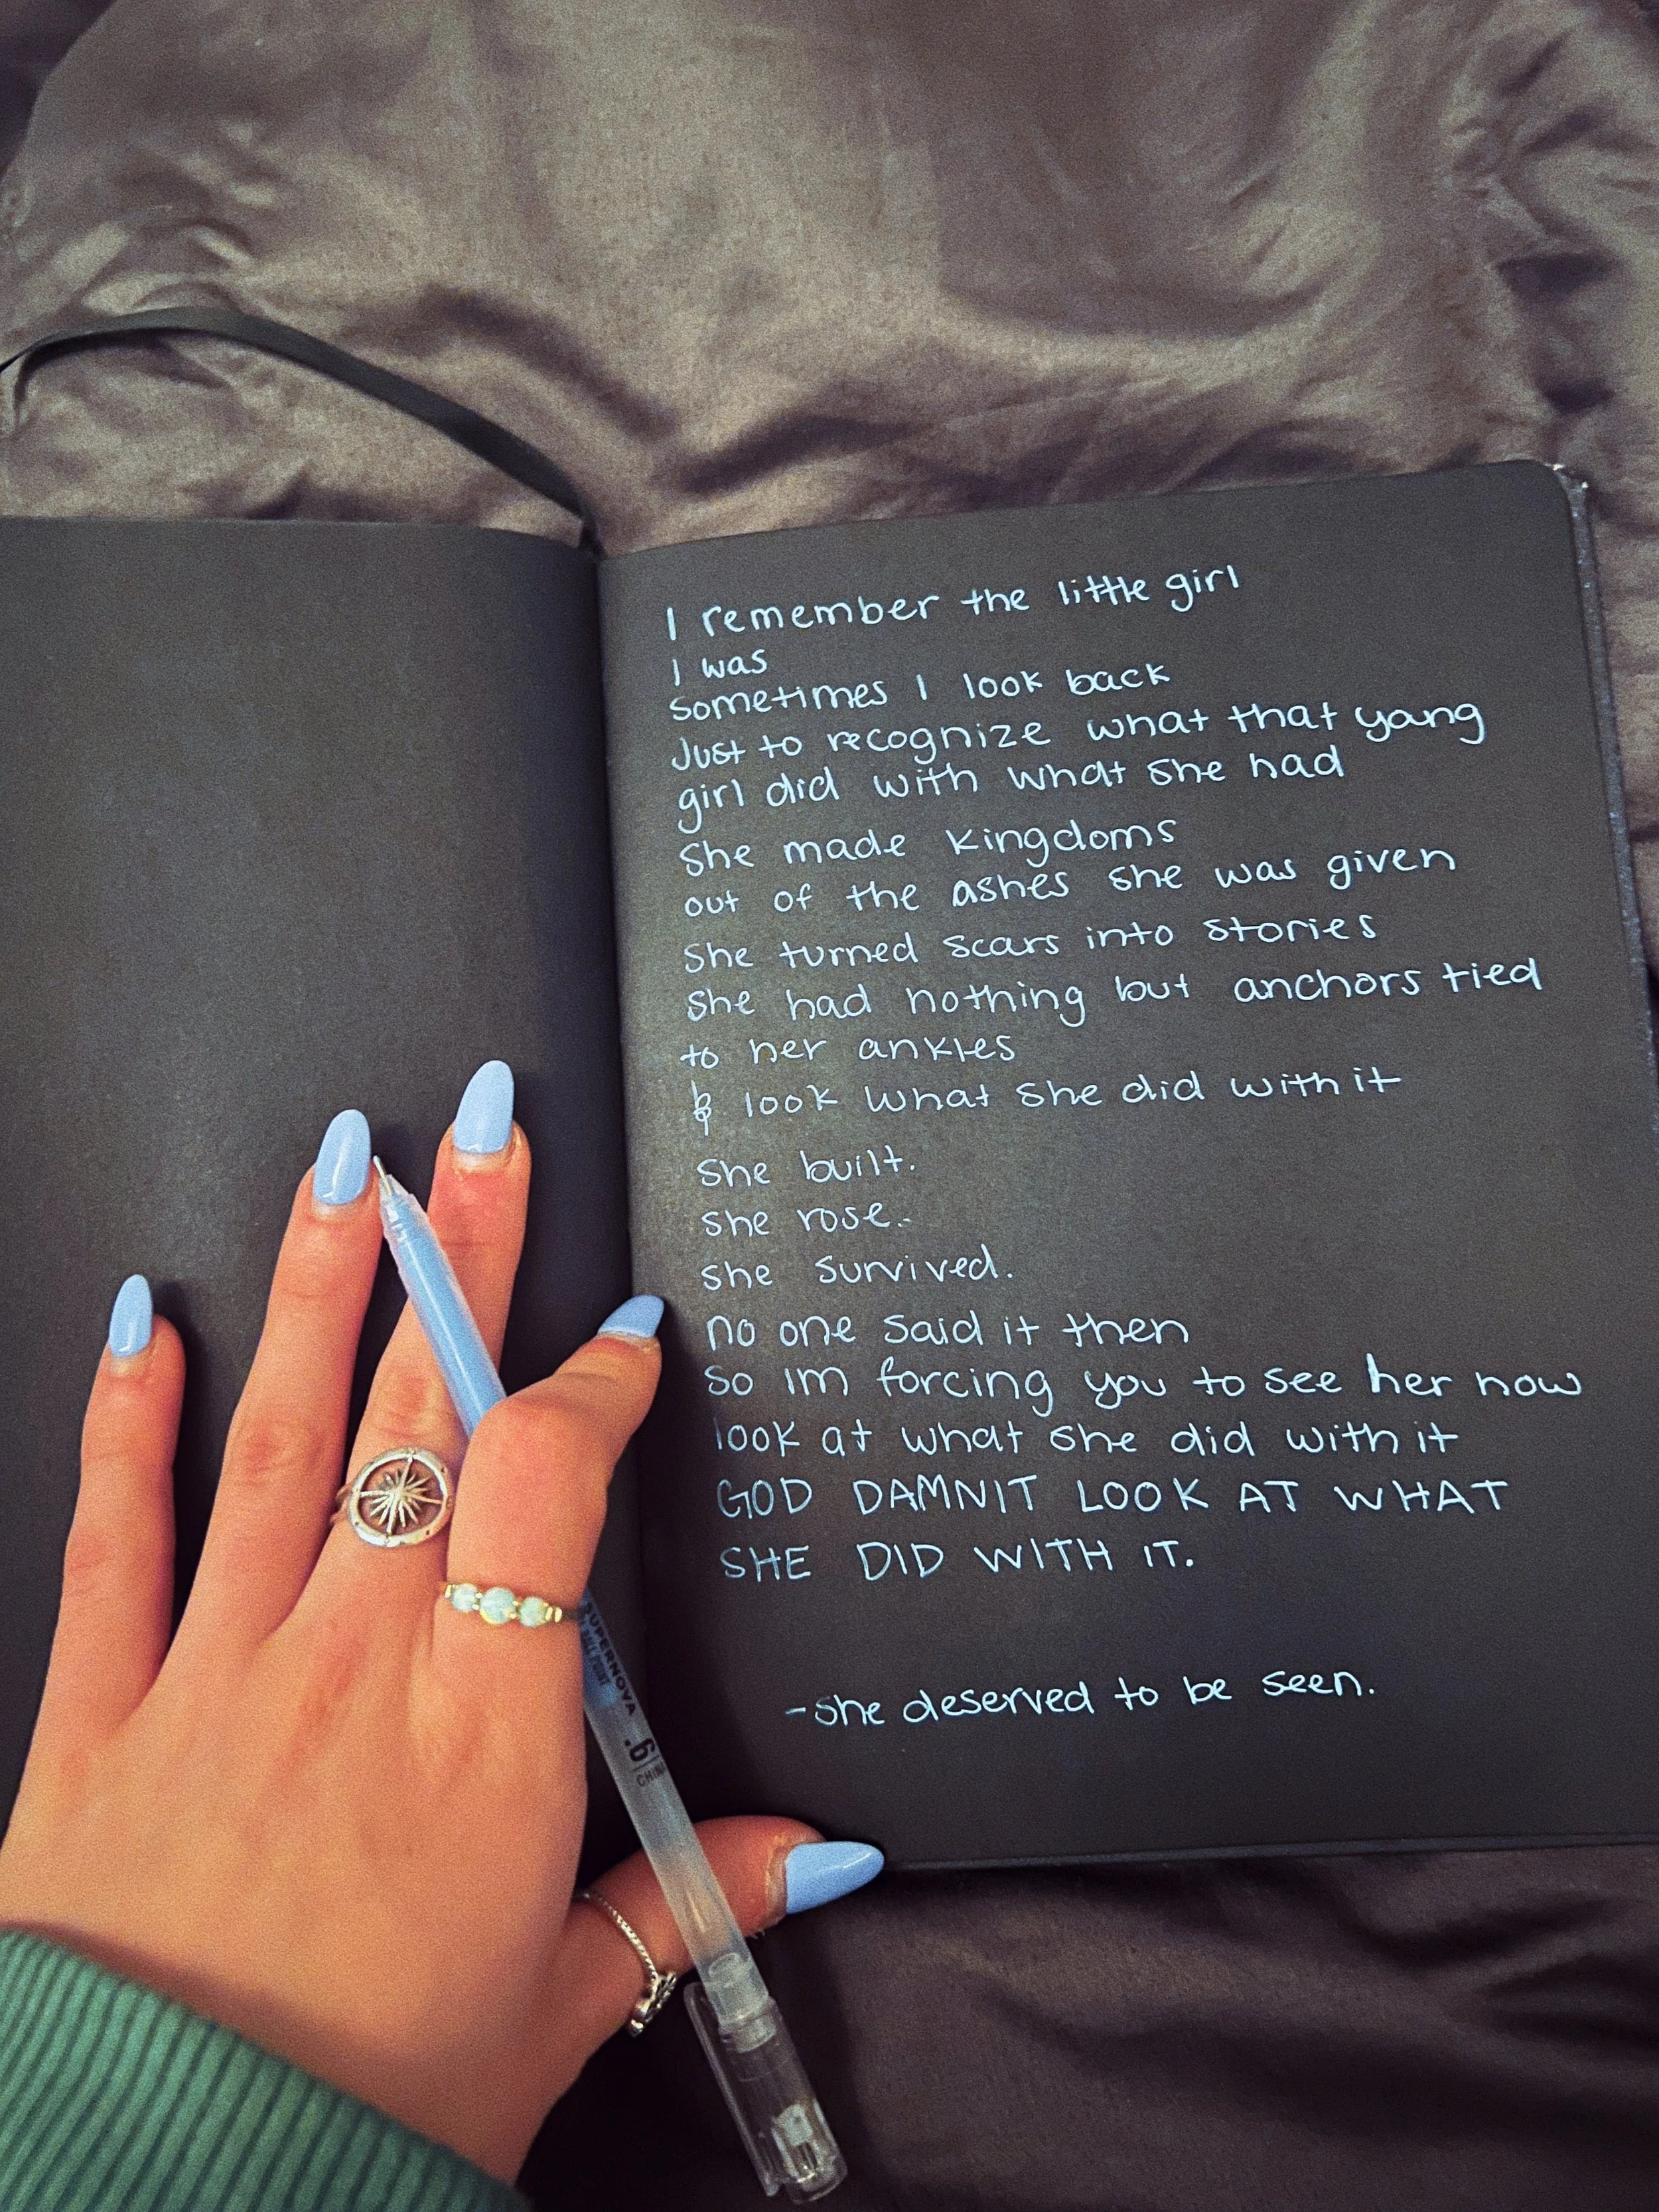 I remember the little girl
I was
sometimes I look back
Just to recognize what that young
girl did with what she had
She made kingdoms
out of the ashes she was given
She turned scars into stories
she had nothing but anchors tied
to her ankles
& look what she did with it
she built.
she rose.
she survived.
no one said it then
so im forcing you to see her now
look at what she did with it
GOD DAMNIT LOOK AT WHAT
SHE DID WITH IT.
-she deserved to be seen.
SUPERNOVA
.6
CHINA